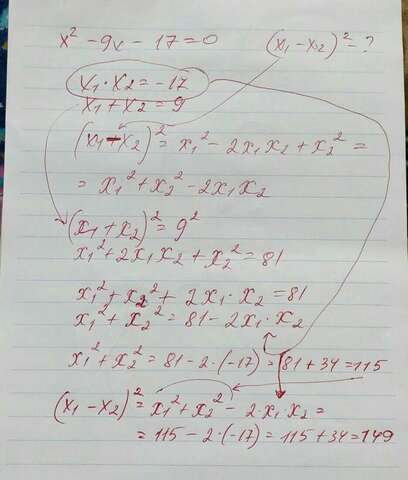 x² - 9x - 17 = 0    (x₁ - x₂)² - ?
x₁ · x₂ = -17
x₁ + x₂ = 9
(x₁ - x₂)² = x₁² - 2x₁x₂ + x₂² =
= x₁² + x₂² - 2x₁x₂
(x₁ + x₂)² = 9²
x₁² + 2x₁x₂ + x₂² = 81
x₁² + x₂² + 2x₁ · x₂ = 81
x₁² + x₂² = 81 - 2x₁ · x₂
x₁² + x₂² = 81 - 2 · (-17) = 81 + 34 = 115
(x₁ - x₂)² = x₁² + x₂² - 2 · x₁ · x₂ =
= 115 - 2 · (-17) = 115 + 34 = 149